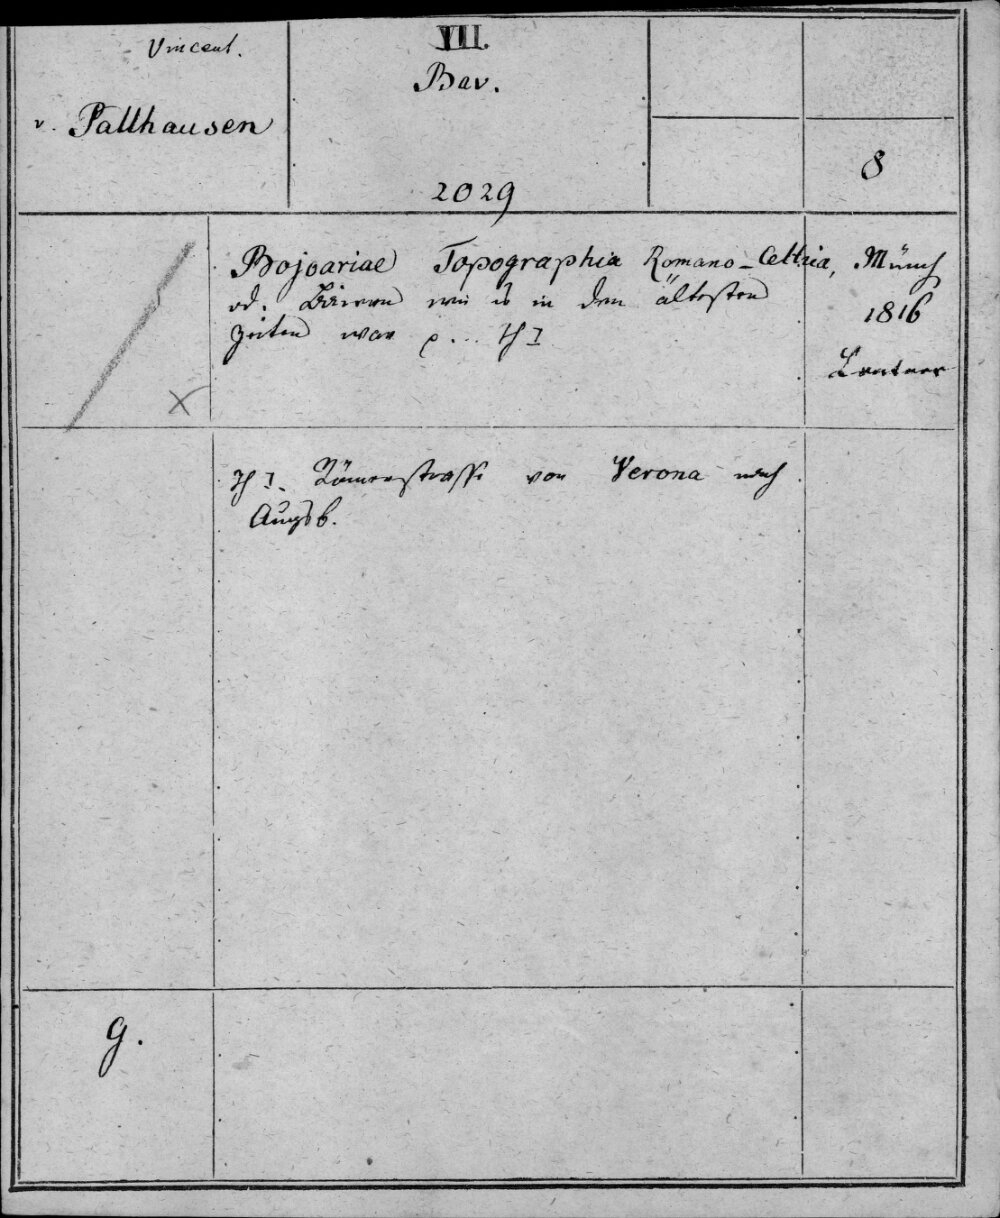 Vincent.
v. Pallhausen
VII.
Bav.
2029
8
Bojoariae Topographia Romano-Celtica,
od. Baiern wie es in den ältesten
Zeiten war p... Th I
Münch
1816
Lentner
Th I. Römerstrasse von Verona nach
Augsb.
g.